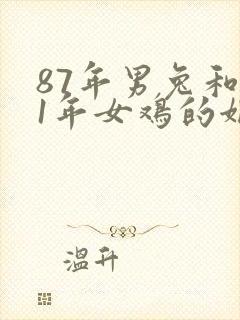 87年男兔和
1年女鸡的
温升